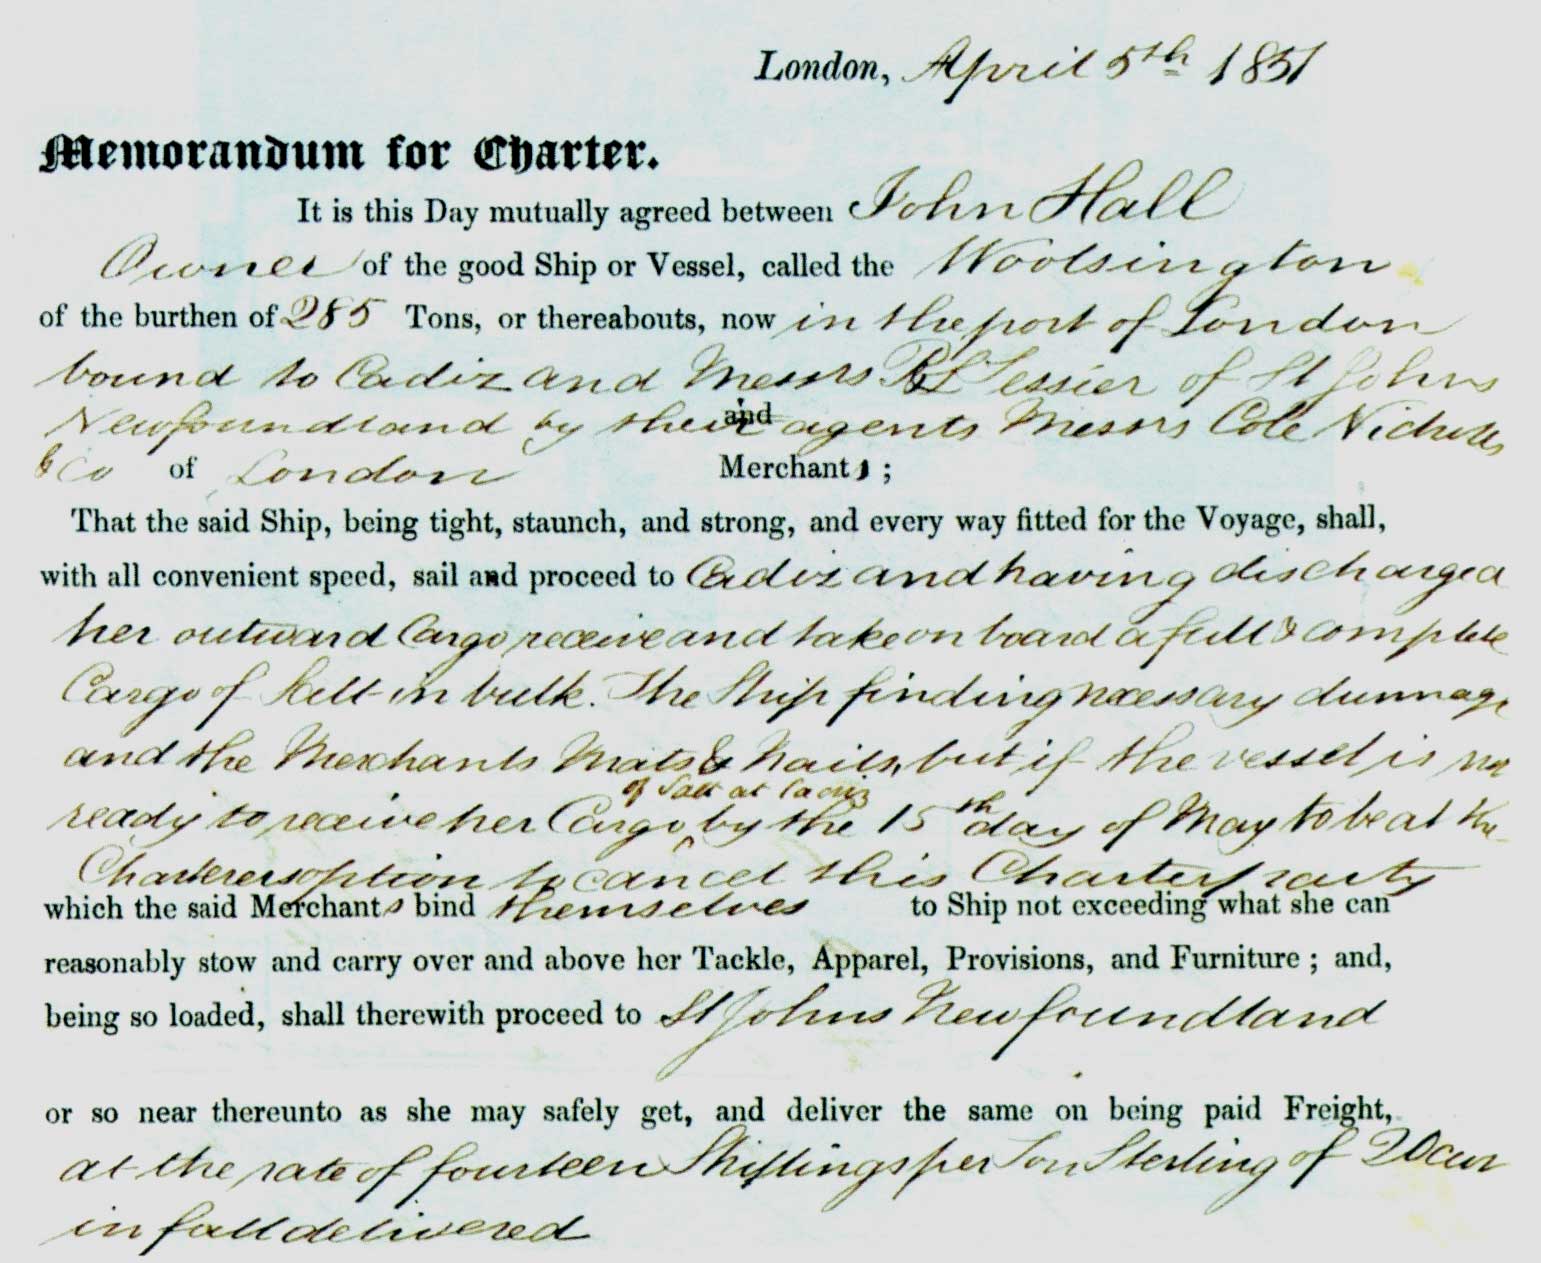 London, April 5th 1851
Memorandum for Charter.
It is this Day mutually agreed between John Hall
Owner of the good Ship or Vessel, called the Woolsington
of the burthen of 285 Tons, or thereabouts, now in the port of London
bound to Cadiz and Messrs Tessier of St Johns
Newfoundland by their and agents Messrs Cole Nicholls
& Co of London Merchants ;
That the said Ship, being tight, staunch, and strong, and every way fitted for the Voyage, shall,
with all convenient speed, sail and proceed to Cadiz and having discharged
her outward Cargo receive and take on board a full & complete
Cargo of Salt in bulk. The Ship finding necessary dunnage
and the Merchants Mats & Nails, but if the vessel is not
of Salt at Cadiz
ready to receive her Cargo by the 15th day of May to be at the
Charterers option to cancel this Charterparty
which the said Merchants bind themselves to Ship not exceeding what she can
reasonably stow and carry over and above her Tackle, Apparel, Provisions, and Furniture ; and,
being so loaded, shall therewith proceed to St Johns Newfoundland
or so near thereunto as she may safely get, and deliver the same on being paid Freight,
at the rate of fourteen Shillings per Ton Sterling of
in full delivered